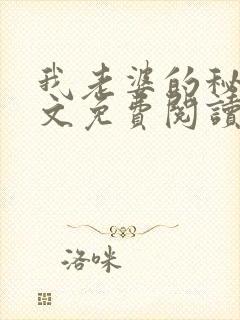 我老婆的秘
文免費閱讀
洛咪